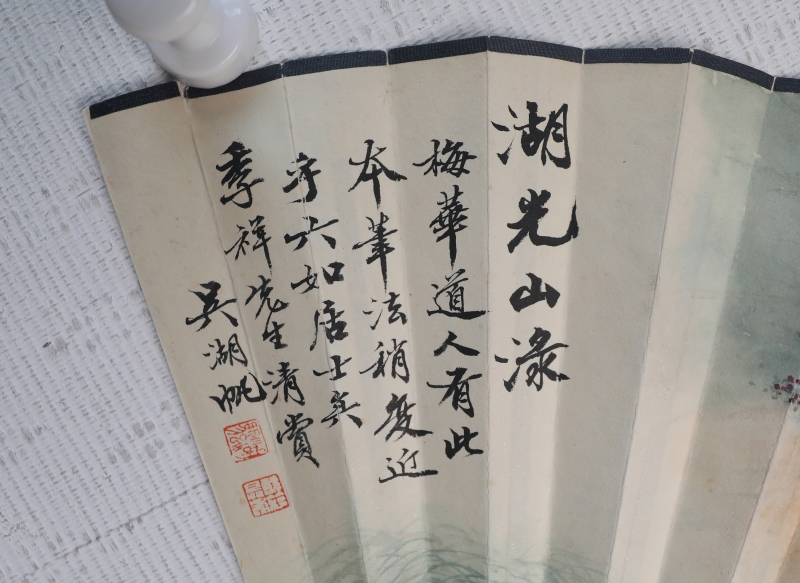 湖光山淥
梅華道人有此
本筆法稍变近
乎六如居士矣
季祥先生清賞
吳湖帆